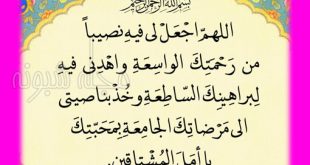 بسم الله الرحمن الرحیم
اللهمَّ اجْعَلْ لی فیهِ نصیباً
من رَحْمَتِكَ الواسِعَةِ واهْدِنی فیهِ
لِبراهِینِكَ السّاطِعَةِ وخُذْ بناصیتی
الی مَرْضاتِكَ الجامِعَةِ بِمَحَبّتِكَ
یا أمَلَ المُشْتاقین
مجله شبونه